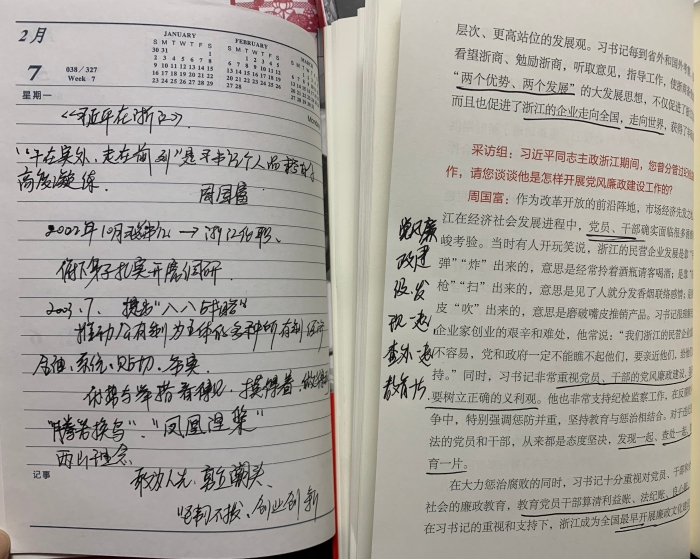 2月
7
星期一
038/327
Week 7
JANUARY
S M T W T F S
30 31 1
2 3 4 5 6 7 8
9 10 11 12 13 14 15
16 17 18 19 20 21 22
23 24 25 26 27 28 29
FEBRUARY
S M T W T F S
1 2 3 4 5
6 7 8 9 10 11 12
13 14 15 16 17 18 19
20 21 22 23 24 25 26
27 28
《习近平在浙江》
"干在实处,走在前列"是习书记个人品格的
高度凝练
周国富
2002年10月 → 浙江任职、
俯下身子扎实开展调研
2003.7. 提出"八八战略"
推动公有制为主体的多种所有制经济
看得见、摸得着、
"腾笼换鸟"、"凤凰涅槃"
两山理念
敢为人先,勇立潮头、
创业创新
记事
层次、更高站位的发展观。习书记每到省外和国外考
看望浙商、勉励浙商,听取意见,指导工作,使浙商
"两个优势、两个发展"的大发展思想,不仅促进了浙
而且也促进了浙江的企业走向全国,走向世界,获得了
采访组:习近平同志主政浙江期间,您曾分管过纪
作,请您谈谈他是怎样开展党风廉政建设工作的?
周国富:作为改革开放的前沿阵地,市场经济先发
江在经济社会发展进程中,党员、干部确实面临很多
峻考验。当时有人开玩笑说,浙江的民营企业发展是靠
弹""炸"出来的,意思是经常拎着酒瓶请客喝酒;是靠
枪""扫"出来的,意思是见了人就分发香烟联络感情;
皮"吹"出来的,意思是磨破嘴皮推销产品。习书记很
企业家创业的艰辛和难处,他常说:"我们浙江的民营企
不容易,党和政府一定不能瞧不起他们,要亲近他们,给他
持。"同时,习书记非常重视党员、干部的党风廉政建设,
要树立正确的义利观。他也非常支持纪检监察工作,在反腐
争中,特别强调惩防并重,坚持教育与惩治相结合。对于
法的党员和干部,从来都是态度坚决,发现一起、查处一起、
育一片。
在大力惩治腐败的同时,习书记十分重视对党员、干部
社会的廉政教育,教育党员干部算清利益账、法纪账、良心
在习书记的重视和支持下,浙江成为全国最早开展廉政文化
党风廉
政建
设:发
现一起
查处一起
教育一片